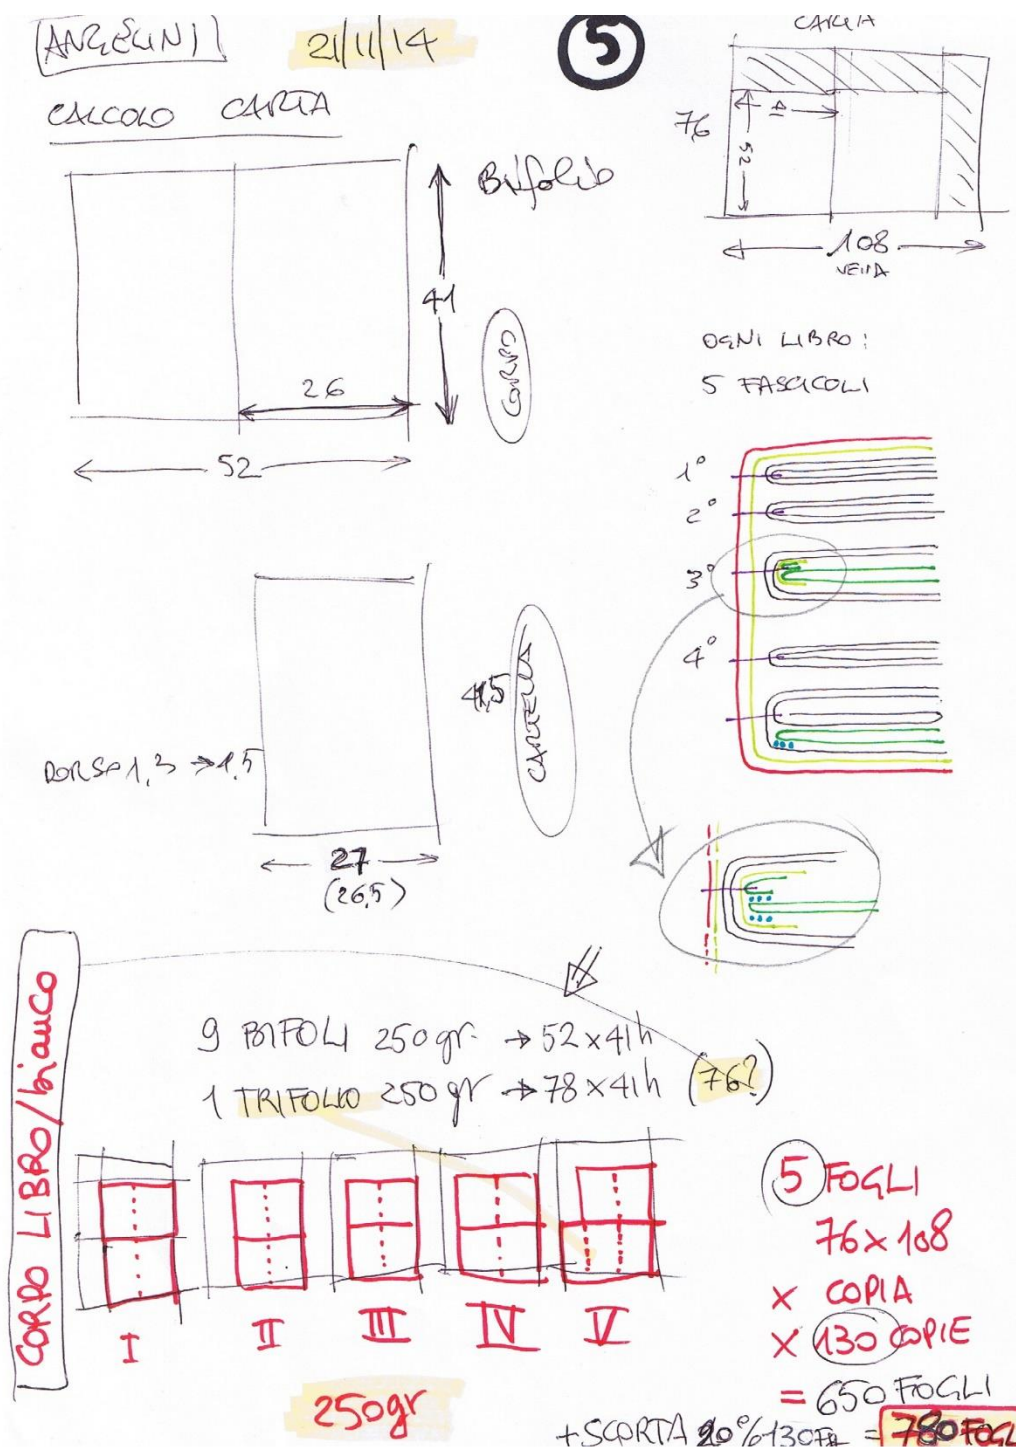 ANGELINI
21/11/14
5
CALCOLO CARTA
CARTA
76
41
52
108
VENA
Bifolio
41
CORPO
26
52
OGNI LIBRO:
5 FASCICOLI
1°
2°
3°
4°
41,5
CARTELLA
DORSO 1,3 → 1,5
27
(26,5)
CORPO LIBRO/bianco
9 BIFOLI 250 gr. → 52 x 41h
1 TRIFOLIO 250 gr → 78 x 41h (76?)
I II III IV V
250gr
5 FOGLI
76 x 108
x COPIA
x 130 COPIE
= 650 FOGLI
+ SCORTA 20% 130 = 780 FOGL